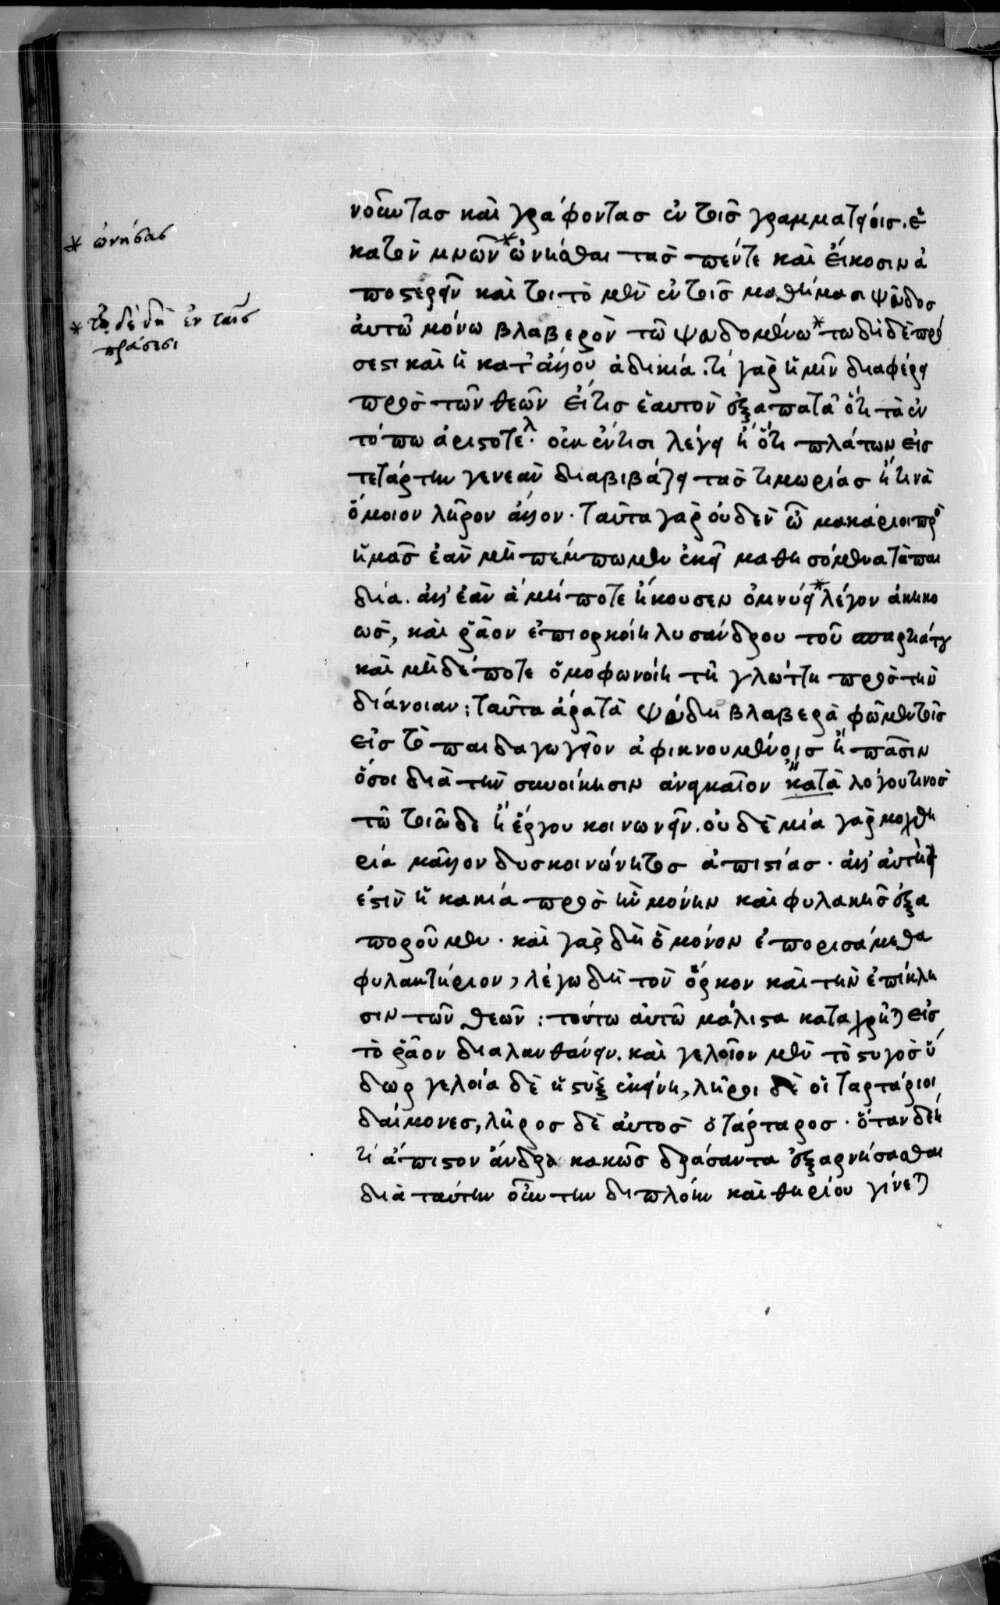 * ὠνήσας
* τῷ δὲ δὴ ἐν ταῖς
πράσεσι
νοῦντας καὶ γράφοντας ἐν τοῖς γραμματείοις. ἑ
κατὸν μνῶν * ὠνεῖσθαι τὰς πέντε καὶ εἴκοσιν ἀ
ποστερεῖν καὶ τοι τὸ μὲν ἐν τοῖς μαθήμασι ψεῦδος
αὐτῷ μόνω βλαβερὸν τῶ ψευδομένω * τω δὴ δὲ πρά
σεσι καὶ ἡ κατ' ἄλλου ἀδικία. τί γὰρ ἡμῖν διαφέρει
πρὸς τῶν θεῶν εἴ τις ἑαυτὸν ἐξαπατᾶ ὅτι τὰ ἐν
τόπω ἀριστοτελ. οὐκ ἔν τισι λέγει ἢ ὅτι πλάτων εἰς
τετάρτην γενεὰν διαβιβάζει τὰς τιμωρίας ἤ τινα
ὅμοιον λῆρον ἄλλον. ταῦτα γὰρ οὐδὲν ὦ μακάριοι πρὸ
ἡμᾶς ἐὰν μὴ πέμπωμεν ἐκεῖ μαθησόμενα τὰ παι
δία. ἀλλ' ἐὰν ἃ μή ποτε ἤκουσεν ὀμνύει * λέγον ἀκηκο
ὼς, καὶ ῥᾶον ἐπιορκοίη λυσάνδρου τοῦ σπαρτιάτου
καὶ μηδέποτε ὁμοφωνοίη τῆ γλώττη πρὸς τὴν
διάνοιαν: ταῦτα ἆρα τὰ ψεύδη βλαβερὰ φῶμεν τοῖς
εἰς τὸ παιδαγωγεῖον ἀφικνουμένοις ἢ πᾶσιν
ὅσοι διὰ τὴν συνοίκησιν ἀναγκαῖον κατὰ λόγου τινὸς
τῶ τοιῶδε ἢ ἔργου κοινωνεῖν. οὐδὲ μία γὰρ μοχθη
ρία μᾶλλον δυσκοινώνητος ἀπιστίας. ἀλλ' αὕτη
ἐστὶν ἡ κακία πρὸς ἣν μόνην καὶ φυλακῆς ἐξα
ποροῦμεν. καὶ γὰρ δὴ ὃ μόνον ἐπορισάμεθα
φυλακτήριον, λέγω δὴ τὸν ὅρκον καὶ τὴν ἐπίκλη
σιν τῶν θεῶν: τούτω αὐτῶ μάλιστα καταχρῆται εἰς
τὸ ῥᾶον διαλανθάνειν. καὶ γελοῖον μὲν τὸ στυγὸς ὕ
δωρ γελοία δὲ ἡ στὺξ ἐκείνη, λῆροι δὲ οἱ ταρτάριοι
δαίμονες, λῆρος δὲ αὐτὸς ὁ τάρταρος. ὅταν δέη
τι ἄπιστον ἄνδρα κακῶς δράσαντα ἐξαρνήσασθαι
διὰ ταύτην οὖν τὴν διπλόην καὶ θηρίου γίνεται